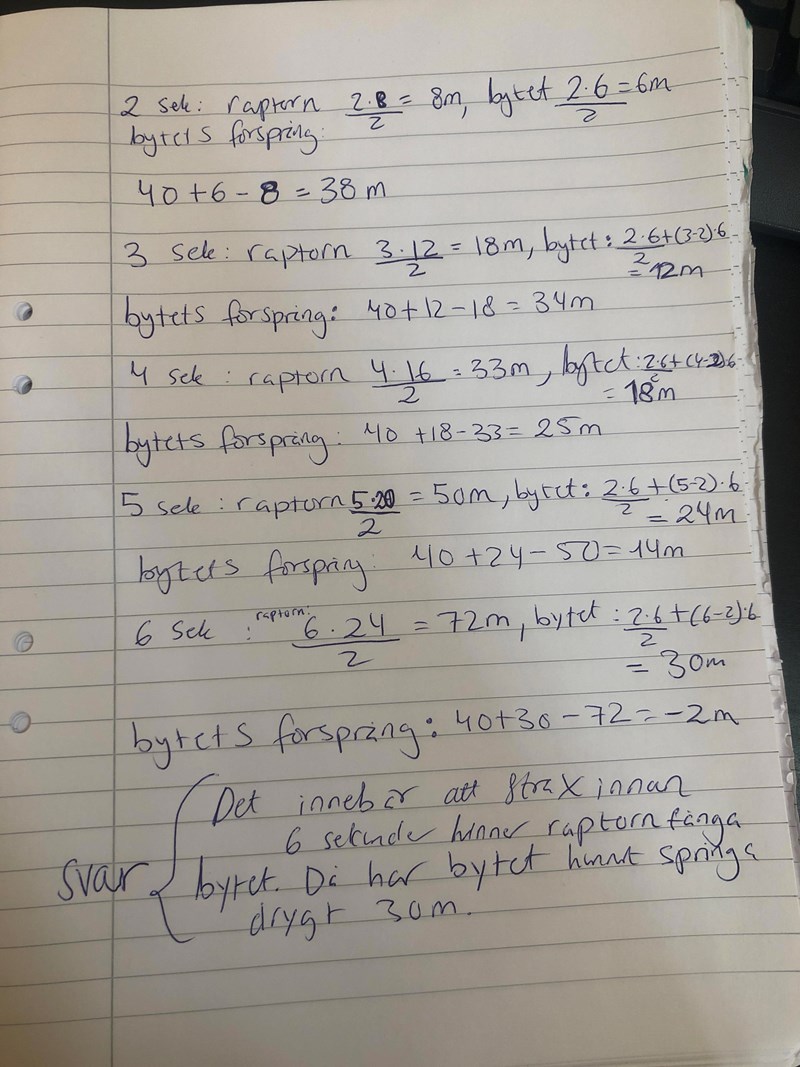 2 sek: raptorn 2·8/2 = 8m, bytet 2·6/2 = 6m
bytets forspring:
40 + 6 - 8 = 38 m
3 sek: raptorn 3·12/2 = 18m, bytet: 2·6/2+(3-2)·6
= 12m
bytets forspring: 40+12-18 = 34m
4 sek: raptorn 4·16/2 = 33m, bytet: 2·6/2+(4-2)·6
= 18m
bytets forspring: 40 +18-33= 25m
5 sek: raptorn 5·20/2 = 50m, bytet: 2·6/2+(5-2)·6
= 24m
bytets forspring: 40+24-50=14m
6 sek: raptorn: 6·24/2 = 72m, bytet: 2·6/2+(6-2)·6
= 30m
bytets forspring: 40+30-72=-2m
Det innebär att strax innan
6 sekunder hinner raptorn fånga
svar bytet. Då har bytet hunnit springa
drygt 30m.